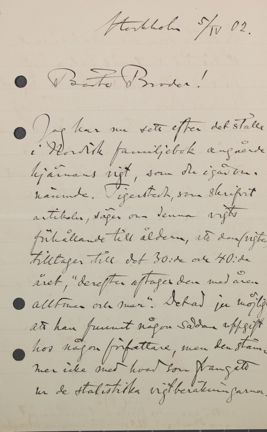 Stockholm 5/IV 02.
Bäste Broder!
Jag har nu sett efter det ställe
i Nordisk familjebok angående
hjärnans vigt, som du igår om-
nämnde. Tigerstedt, som skrifvit
artikeln, säger om denna vigts
förhållande till åldern, att den
tilltager till det 30:de och 40:de
året, "derefter aftager den med åren
allt mer och mer". Det är ju möjligt
att han funnit någon sådan uppgift
hos någon författare, men den stäm-
mer icke med hvad som framgått
ur de statistiska vigtberäkningarna